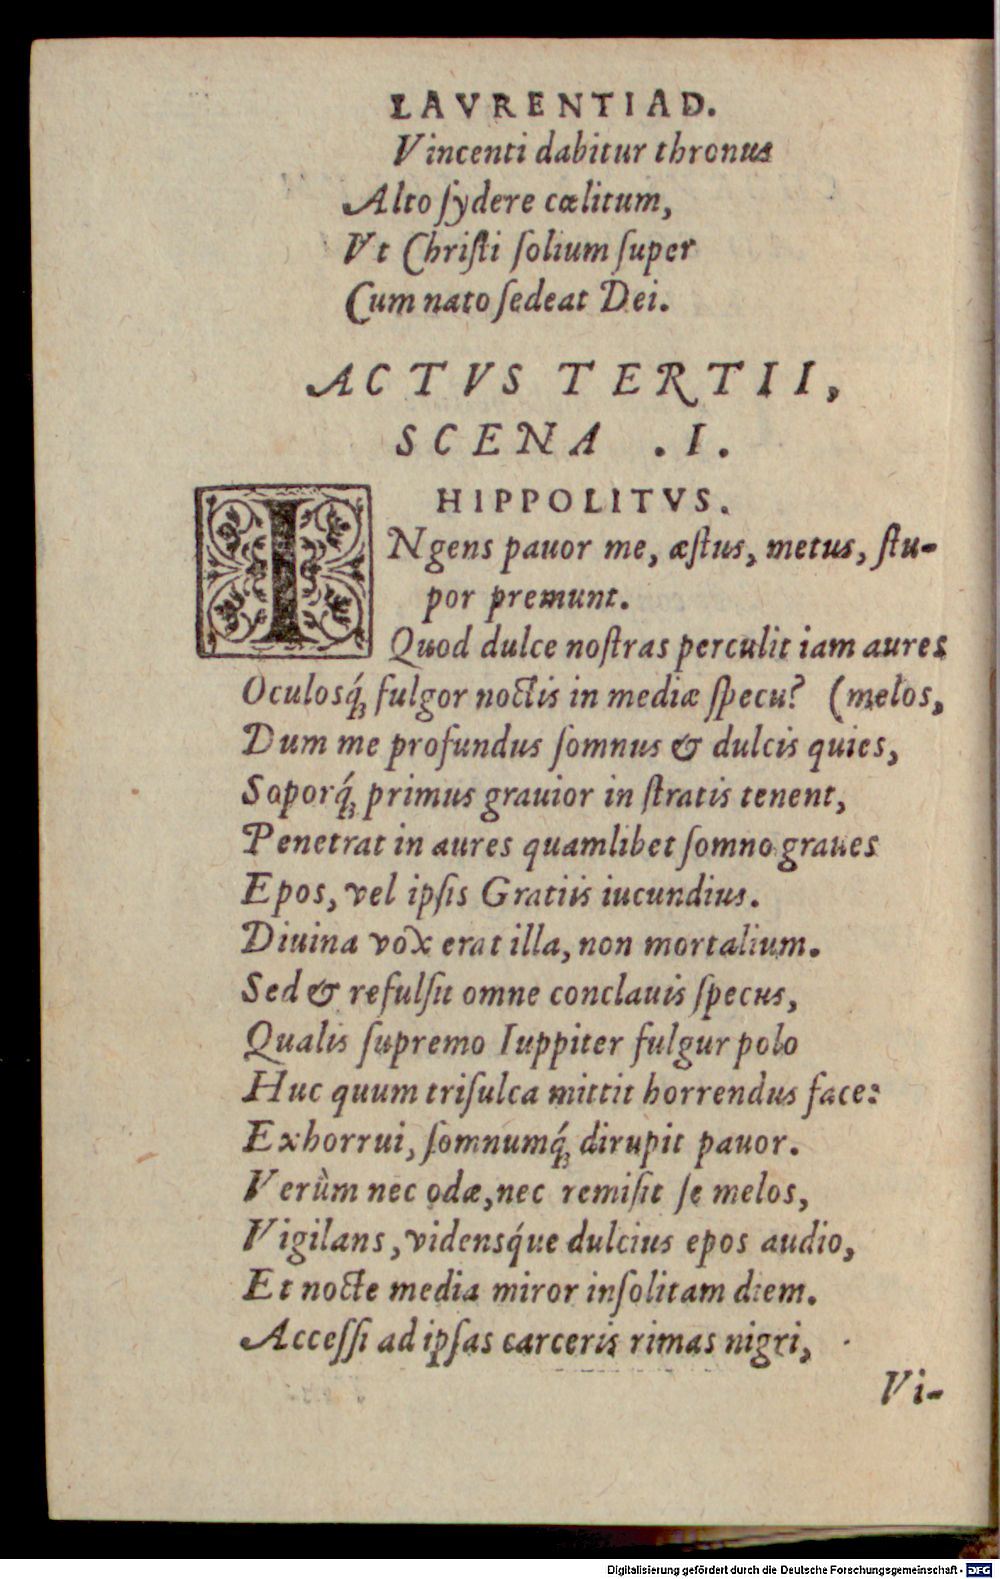 LAVRENTIAD.
Vincenti dabitur thronus
Alto ſydere cœlitum,
Vt Chriſti ſolium ſuper
Cum nato ſedeat Dei.
ACTVS TERTII,
SCENA .I.
HIPPOLITVS.
INgens pauor me, æſtus, metus, ſtu-
por premunt.
Quod dulce noſtras perculit iam aures
Oculosq́; fulgor noctis in mediæ ſpecu? (melos,
Dum me profundus ſomnus & dulcis quies,
Soporq́; primus grauior in ſtratis tenent,
Penetrat in aures quamlibet ſomno graues
Epos, vel ipſis Gratiis iucundius.
Diuina vox erat illa, non mortalium.
Sed & refulſit omne conclauis ſpecus,
Qualis ſupremo Iuppiter fulgur polo
Huc quum triſulca mittit horrendus face:
Exhorrui, ſomnumq́; dirupit pauor.
Verùm nec odæ, nec remiſit ſe melos,
Vigilans, vidensq́ue dulcius epos audio,
Et nocte media miror inſolitam diem.
Acceſſi ad ipſas carceris rimas nigri,
Vi-
Digitalisierung gefördert durch die Deutsche Forschungsgemeinschaft - DFG